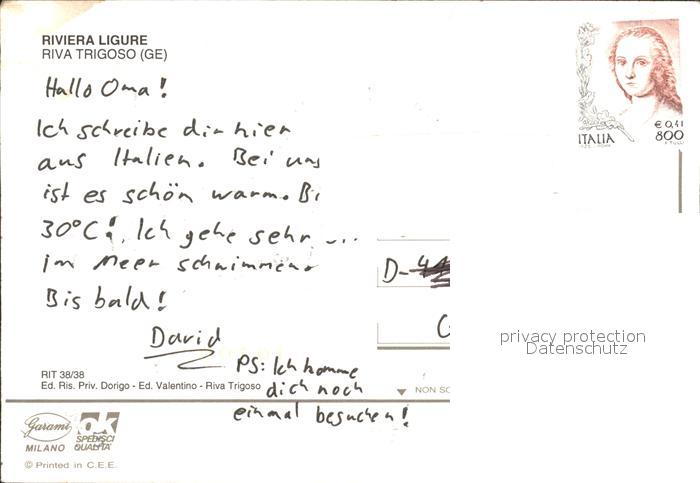 RIVIERA LIGURE
RIVA TRIGOSO (GE)
Hallo Oma!
Ich schreibe dir hier
aus Italien. Bei uns
ist es schön warm. Bi
30°C! Ich gehe sehr
im Meer schwimmen.
Bis bald!
David
PS: Ich komme
dich noch
einmal besuchen!
D-
ITALIA
€ 0,41
800
privacy protection
Datenschutz
RIT 38/38
Ed. Ris. Priv. Dorigo - Ed. Valentino - Riva Trigoso
NON SC
Garami
MILANO
ok
SPEDISCI
QUALITA'
© Printed in C.E.E.